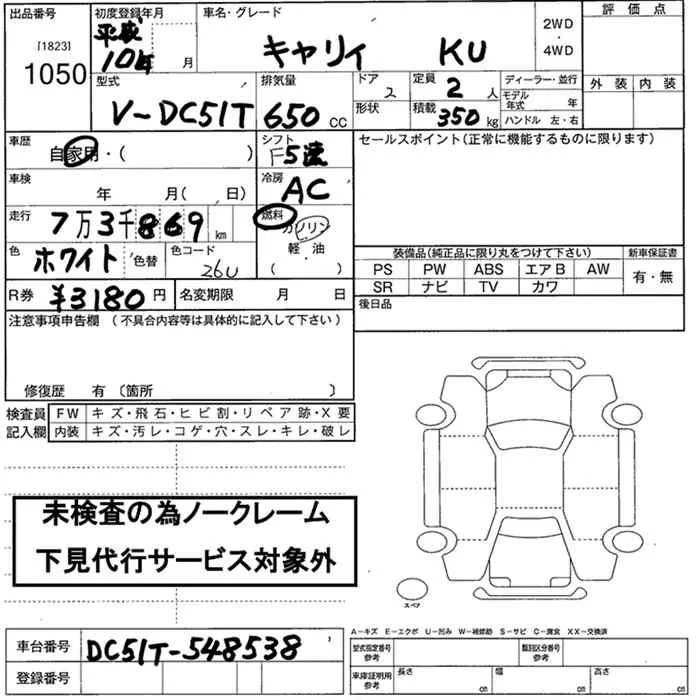 出品番号 初度登録年月 車名・グレード 2WD・4WD 評価点
[1823] 平成 キャリィ KU
1050 10年 月
型式 排気量 ドア 2 定員 2人 ディーラー・並行 外装 内装
V-DC51T 650 CC 形状 積載 350kg モデル年式 年
ハンドル 左・右
車歴 自家用・( ) シフト F5速 セールスポイント(正常に機能するものに限ります)
車検 年 月( 日) 冷房 AC
走行 7万3千869km 燃料 ガソリン
軽・油
( )
色 ホワイト 色替 色コード 26U
装備品(純正品に限り丸をつけて下さい) 新車保証書
PS PW ABS エアB AW 有・無
SR ナビ TV カワ
R券 ¥3180円 名変期限 月 日 後日品
注意事項申告欄(不具合内容等は具体的に記入して下さい)
修復歴 有〔箇所 〕
検査員 FW キズ・飛石・ヒビ割・リペア跡・X要
記入欄 内装 キズ・汚レ・コゲ・穴・スレ・キレ・破レ
未検査の為ノークレーム
下見代行サービス対象外
スペア
A-キズ E-エクボ U-凹み W-補修跡 S-サビ C-腐食 XX-交換済
車台番号 DC51T-548538 型式指定番号 参考 類別区分番号 参考
登録番号 車庫証明用 参考 長さ cm 幅 cm 高さ cm